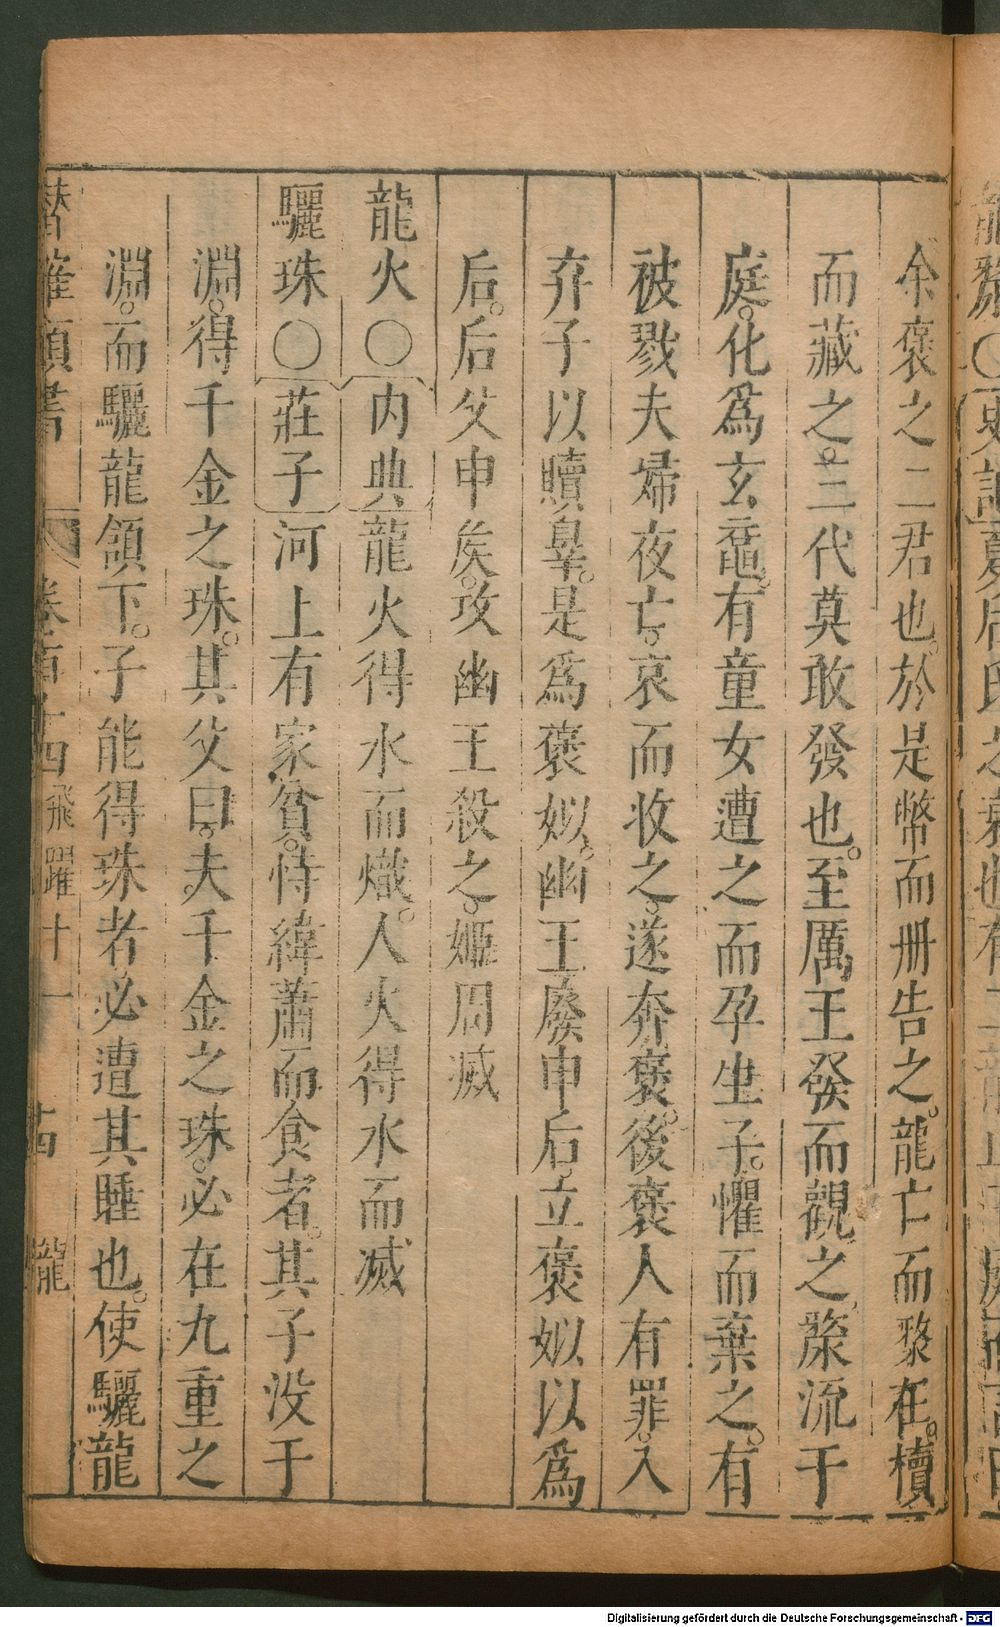 余褒之二君也。於是幣而册告之。龍亡而漦在。櫝
而藏之。三代莫敢發也。至厲王發而觀之。漦流于
庭。化爲玄黿。有童女遭之而孕生子。懼而棄之。有
被戮夫婦夜亡。哀而收之。遂奔褒。後褒人有罪。入
弃子以贖辠。是爲褒姒。幽王廢申后。立褒姒以爲
后。后父申矦。攻幽王殺之。姬周滅
龍火〇内典龍火得水而熾。人火得水而滅
驪珠〇莊子河上有家貧。恃緯蕭而食者。其子没于
淵。得千金之珠。其父曰。夫千金之珠。必在九重之
淵。而驪龍頷下。子能得珠者。必遭其睡也。使驪龍
潛確類書 卷百十四 飛躍十一 龍
Digitalisierung gefördert durch die Deutsche Forschungsgemeinschaft - DFG